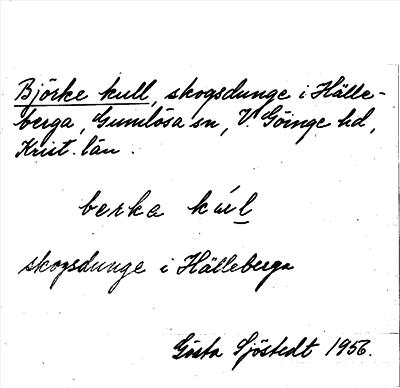 Björke kull, skogsdunge i Hälle-
berga, Gumlösa sn, V. Göinge hd,
Krist. län.
berka kúl
skogsdunge i Hälleberga
Gösta Sjöstedt 1956.